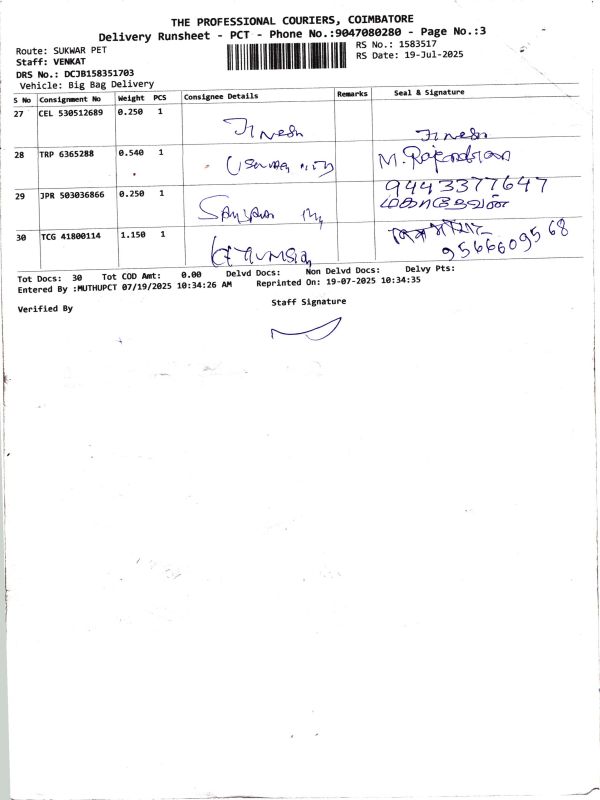 THE PROFESSIONAL COURIERS, COIMBATORE
Delivery Runsheet - PCT - Phone No.:9047080280 - Page No.:3
Route: SUKWAR PET
RS No.: 1583517
Staff: VENKAT
RS Date: 19-Jul-2025
DRS No.: DCJB158351703
Vehicle: Big Bag Delivery
S No Consignment No Weight PCS Consignee Details Remarks Seal & Signature
27 CEL 530512689 0.250 1 Jinesh Jinesh
28 TRP 6365288 0.540 1 M. Rajendran
9443377647
29 JPR 503036866 0.250 1
30 TCG 41800114 1.150 1 9566609568
Tot Docs: 30 Tot COD Amt: 0.00 Delvd Docs: Non Delvd Docs: Delvy Pts:
Entered By :MUTHUPCT 07/19/2025 10:34:26 AM Reprinted On: 19-07-2025 10:34:35
Verified By Staff Signature